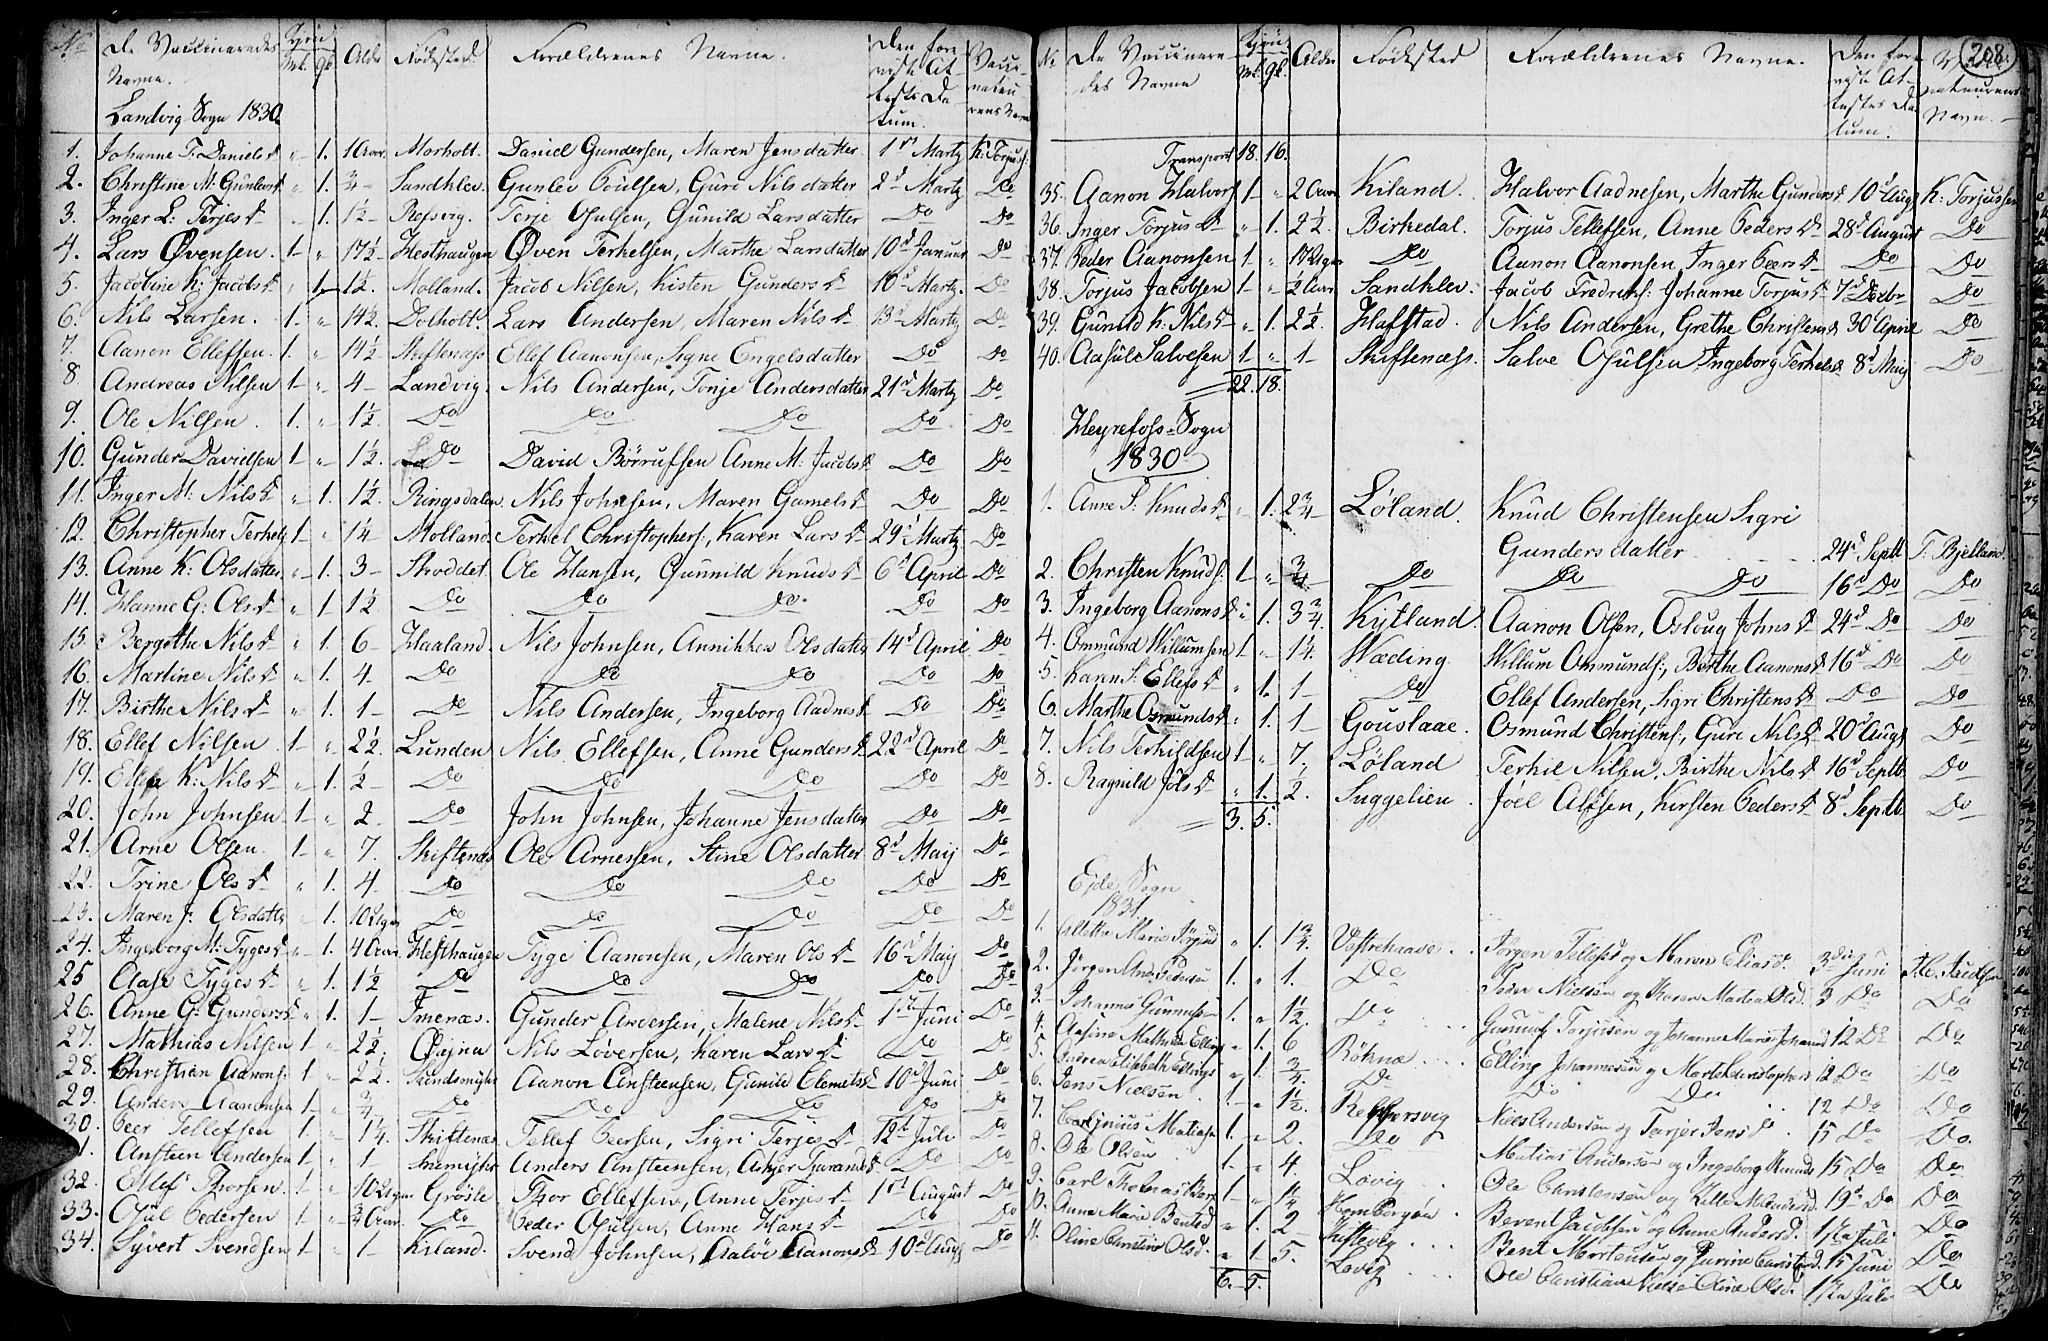 No De Vaccineredes Navne. Kjön Mk. Qk. Alder Fødested Forældrenes Navne. Den foreviiste Attests Datum. Vaccinateurens Navn
Landvig Sogn 1830.
1. Johanne T. Daniels D. " 1. 1 Aar. Morholt. Daniel Gundersen, Maren Jensdatter 1st Martz K: Torjuss.
2. Christine M: Gunlevs D. " 1. 3/4 Sandklev. Gunlev Poulsen, Guri Nilsdatter 2d Martz Do
3. Inger L: Terjes D. " 1. 1½ Refsvig. Terje Osulsen, Gunild Larsdatter Do Do
4. Lars Øvensen. 1 " 17½ Hesthaugen Øven Terkelsen, Marthe Larsdatter 10d Januar Do
5. Jacobine K: Jacobs D. " 1 1½. Molland. Jacob Nilsen, Kisten Gunders D. 10d Martz. Do
6. Nils Larsen. 1 " 14½. Dolholt. Lars Andersen, Maren Nils D. 13d Martz Do
7. Aanon Ellefsen. 1. " 11½ Skiftenæss Ellef Aanonsen, Signe Engelsdatter Do Do
8 Andreas Nilsen 1 " 4 Landvig. Nils Andersen, Tonje Andersdatter 21d Martz Do
9. Ole Nilsen. 1. " 1½ Do Do Do Do Do
10. Gunder Davidsen 1 " 1½. Do David Börrufsen Anne M: Jacobs D. Do Do
11. Inger M: Nils D. " 1. 1½. Ringsdalen. Nils Johnsen, Maren Gamels D. Do Do
12. Christopher Terkels. 1 " 1¼ Molland. Terkel Christophers:, Karen Lars D. 29d Martz Do
13. Anne K: Olsdatter " 1. 3 Skoddet. Ole Hansen, Gunnild Knuds D. 6d April Do
14. Hanne G: Ols D. " 1 1½ Do Do Do Do Do
15 Bergithe Nils D. " 1. 6 Haaland. Nils Johnsen, Annikken Olsdatter 14d April Do
16. Martine Nils D. " 1. 4. Do Do Do Do Do
17. Birthe Nils D. " 1. 1 Do Nils Andersen, Ingeborg Aadnes D. Do Do
18. Ellef Nilsen 1 " 2½. Lunden Nils Ellefsen, Anne Gunders D. 22d April Do
19. K: Nils D. " 1. ½ Do Do Do Do Do
20. John Johnsen. 1 " 2. Do John Johnsen, Johanne Jensdatter Do Do
21. Arne Olsen. 1 " 7. Skiftenæs Ole Arnessen, Stine Olsdatter 8d Maij Do
22. Trine Ols D. " 1. 4. Do Do Do Do Do
23. Maren J: Olsdatter " 1. 10 Uger Do Do Do Do Do
24. Ingeborg M: Tyges D. " 1. 4 Aar. Hesthaugen Tyge Aanonsen, Maren Ols D. 16d Maij Do
25 Aase Tyges D. " 1. 1½ Do Do Do Do Do
26. Anne G: Gunders D. " 1. 1 Imenæs. Gunder Andersen, Malene Nils D. 1st Juni Do
27. Mathias Nilsen 1 " 2½. Nils Løversen, Karen Lars D. Do Do
28. Christian Aanons: 1 " 2½. Aanon Ansteensen, Gunild Clemets D. 10d Juni Do
29. Anders Aanonsen 1 " 3/4 Do Do Do Do Do
30. Peer Tellefsen 1 " 1¼. Skiftenæs Tellef Peersen, Sigri Terjes D. 12d Juli Do
1. Ansteen Andersen 1 " 1 Anders Ansteensen, Asbjør Tarands D. Do Do
32. Ellef Thorsen. 1 " 10 Uger Grøsle Thor Ellefsen, Anne Terjes D. 1st August Do
33. Osul Pedersen 1 " 3/4 Aar. Do Peder Osulsen, Anne Hans D. Do Do
34. Syvert Svendsen 1 " 1 Kiland. Svend Johnsen, Aaløv Aanons D. 10d Augs Do
208.
No De Vaccineredes Navne Kjön Mk. Qk. Alder Fødested Forældrenes Navne. Den foreviiste Attestes Datum. Vaccinateurens Navn.
Transport 18. 16.
35. Aanon Halvors. 1 " 2 Aar Kiland. Halvor Aadnesen, Marthe Gunders D. 10d Augs K: Torjussen
36. Inger Torjus D. " 1. 2½. Birkedal. Torjus Tellefsen, Anne Peders D. 28d August Do
37. Peder Aanonsen 1 " 12 Uger Do Aanon Aanonsen, Inger Peers D. Do Do
38. Torjus Jacobsen 1 " ½ Aar. Sandklev. Jacob Fredreks: Johanne Torjus D. 7d Do
39. Gunild K: Nils D. " 1. 2½. Hafstad. Nils Andersen, Grethe Christens D. 30 April Do
40. Aasul Salvesen 1 " 1 Skiftenæss. Salve Osulsen Ingeborg Terkels D. 8d Maij Do
22. 18.
Heyrefoss-Sogn
1830
1. Anne S: Knuds D. " 1. 2¾ Løland. Knud Christensen Sigri
Gundersdatter 24d Septb T. Bjelland.
2. Christen Knuds: 1 " ¾ Do Do Do 16d Do Do
3. Ingeborg Aanons D. " 1. 3¾. Kytland. Aanon Olsen, Osloug Johns D. 24d Do Do
4. Ommund Willumsen 1 " 1¼. Wæding. Willum Ommunds:, Birthe Aanons D. 16d Do Do
5. Karen S: Ellefs D. " 1. 1 Do Ellef Andersen, Sigri Christens D. Do Do
6. Marthe Osmunds D. " 1. 1 Gouslaae. Osmund Christens:, Guri Nils D. 20d Augs Do
7. Nils Terkildsen 1 " 7. Løland Terkil Nilsen, Birthe Nils D. 16d Septb Do
8. Ragnild Jöls D. " 1. ½. Suggelien. Jöel Alfsen, Kirsten Peders D. 8d Septb Do
3. 5.
Eide Sogn
1831.
1. Alletha Marie Jörgensd " 1. 1¾. Vestrehaave Jørgen Tellefs. og Maren Eliasd. 3die Juni
2. Jörgen And: Pedersen 1. " 1. Do Peder Nielsen og Karen Martha Olsd. 3 Do Do
3. Johannes Gunnufs 1. " 1½. Do Gunnuf Torjusen og Johanne Marie Johannesd 12 Do Do
4. Aasine Mathilde Ellings " 1. 6 Röhnæ Elling Johannesen og Marthe Christophers 12 Do Do
5. Andrea Elisabeth Ellings " 1. ¾. Do Do Do 12 Do Do
6. Jens Nielsen 1. " 1½. Rekkersvig Niels Andersen og Torjer Jensd. 15 Do Do
7. Matiasen 1. " 2. Do Matias Andersen og Ingeborg Knuds 15. Do Do
8. Ole Olsen 1. " 4. Lövig Ole Christensen og 19d Do Do
9. Carl Tholnas Ber. 1 " 1¼ Hombergöen Berent Jacobsen og Anne Andersd. 1ste Juli Do
10. Anne Marie Bentsd " 1. 2 Kiftevig Bent Mortensen og Jurine Christensd. 15 Juni Do
11. Oline Christine Olsd. " 1. 5. Lövig Ole Christian Nielsen Oline Olsd. 1ste Juli Do
6. 5.